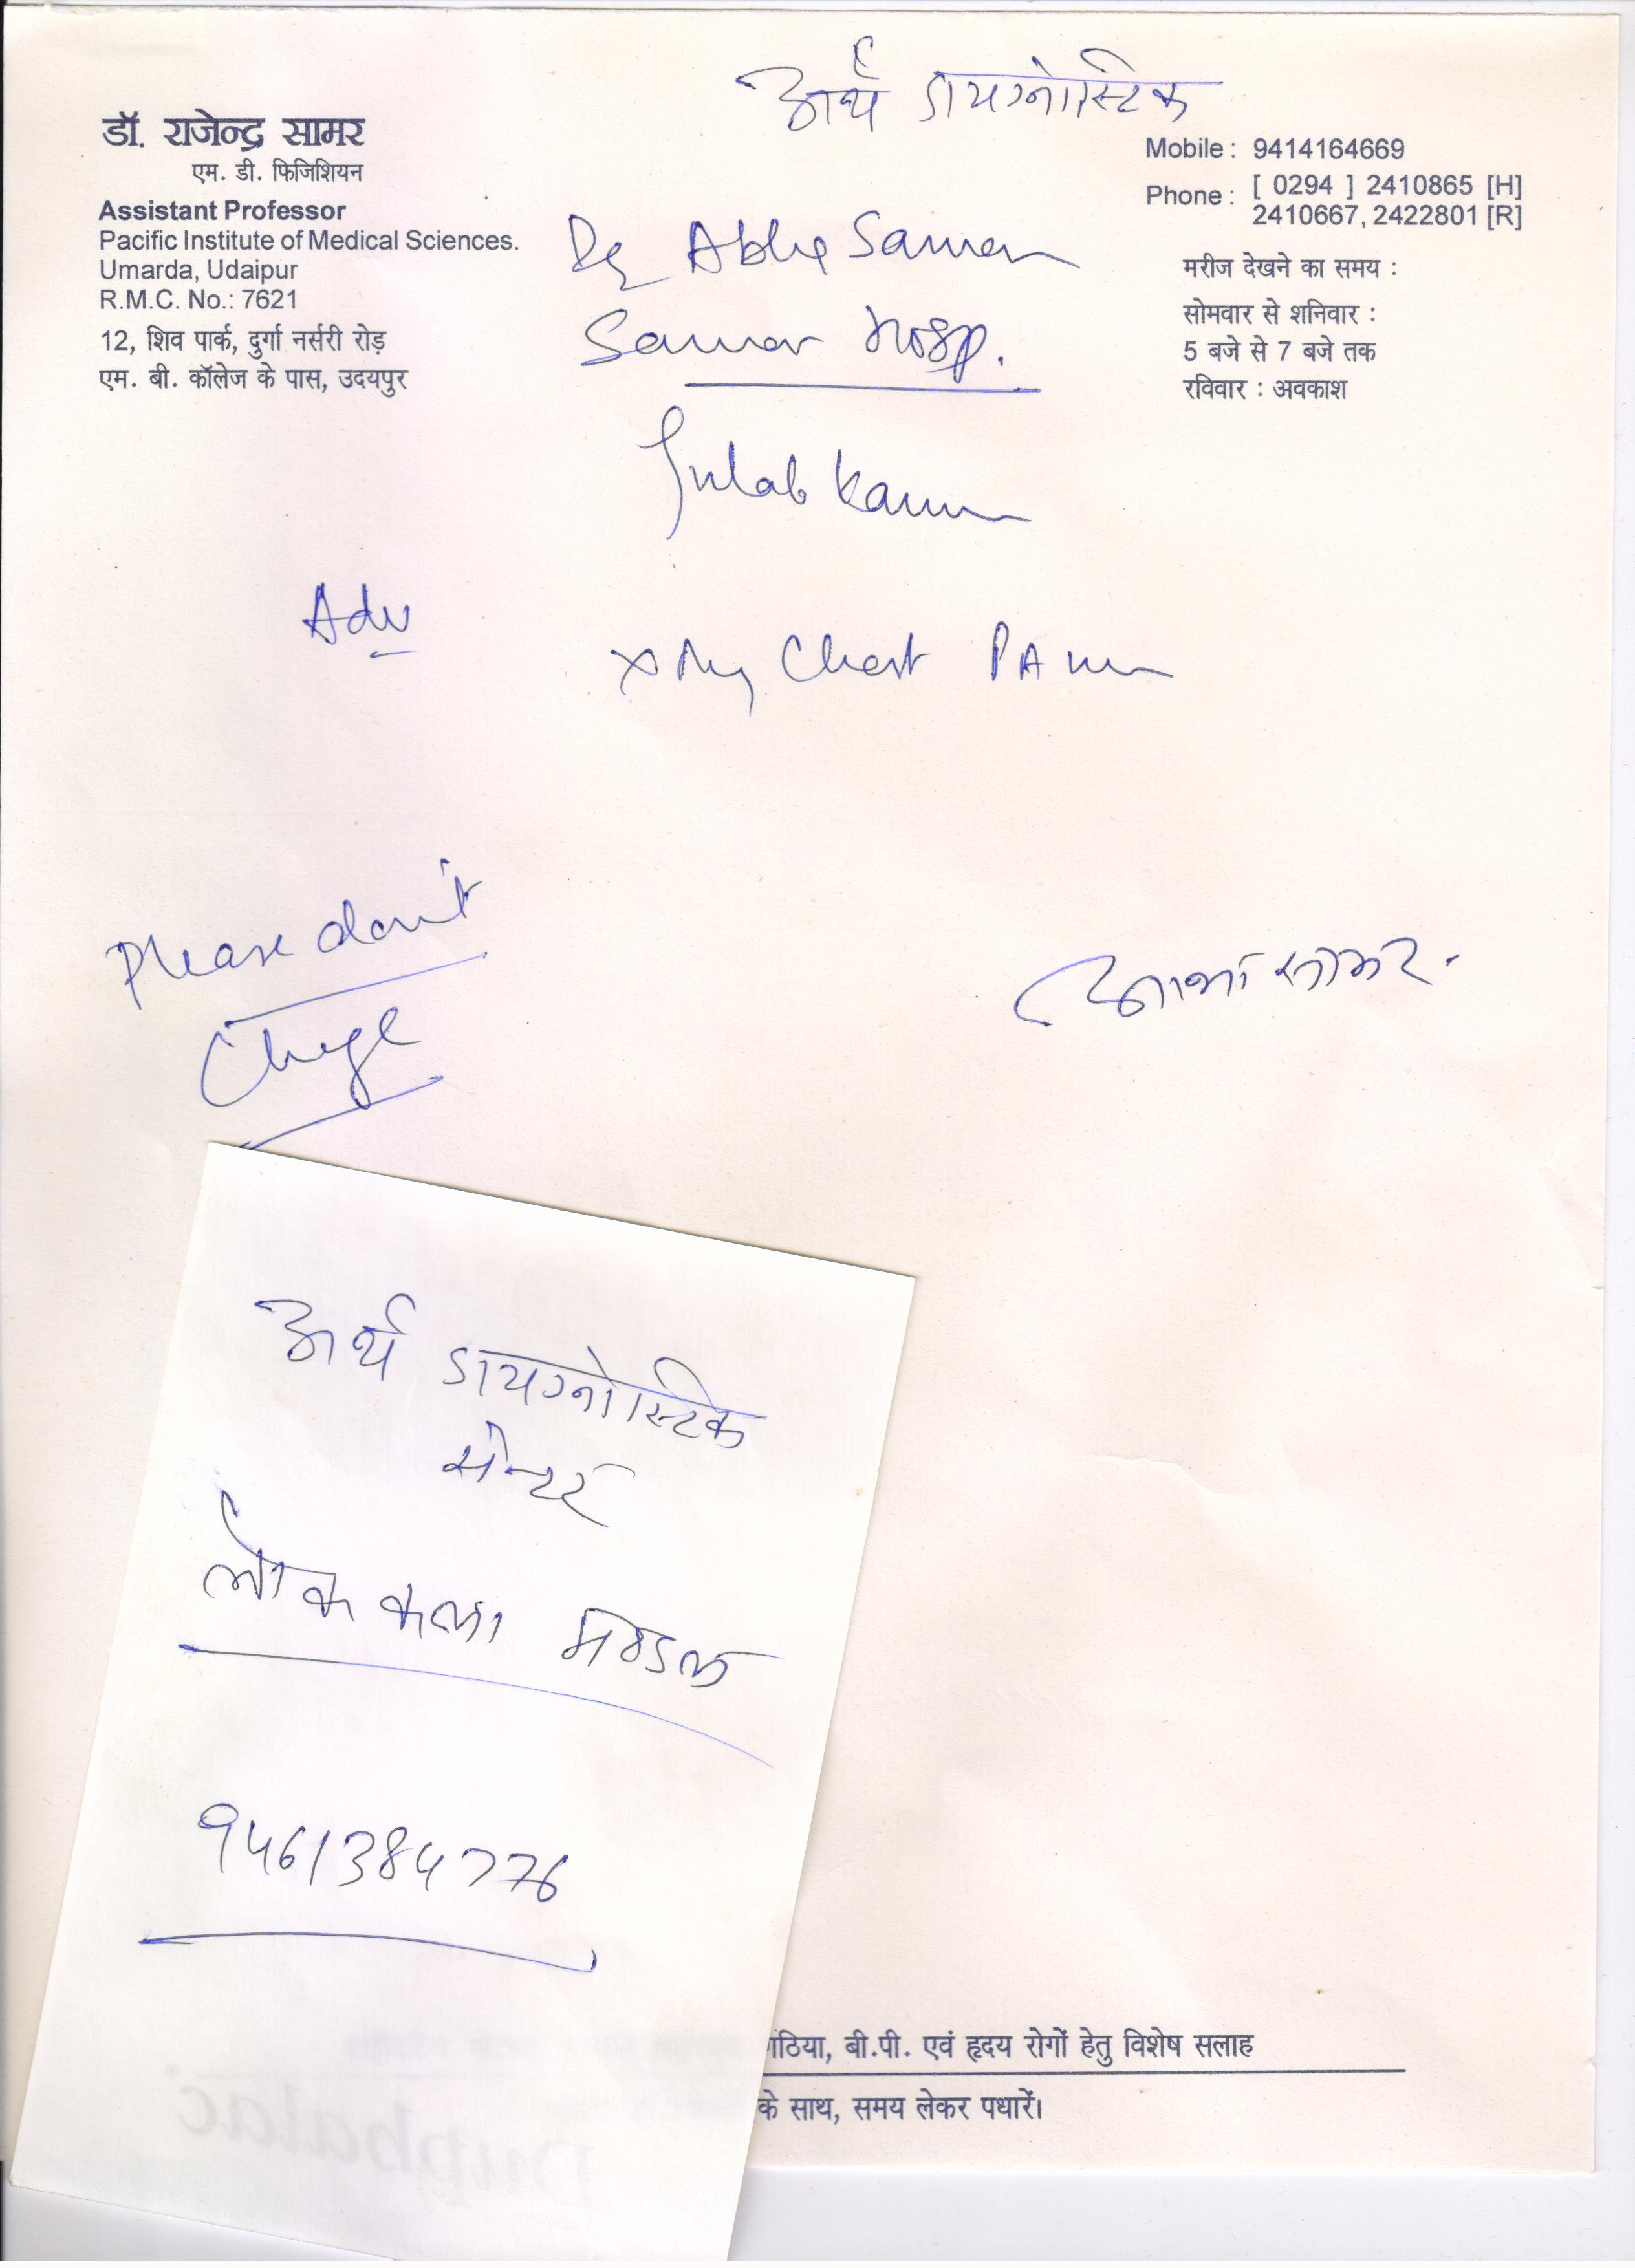 अर्थ डायग्नोस्टिक
डॉ. राजेन्द्र सामर
एम. डी. फिजिशियन
Assistant Professor
Pacific Institute of Medical Sciences.
Umarda, Udaipur
R.M.C. No.: 7621
12, शिव पार्क, दुर्गा नर्सरी रोड़
एम. बी. कॉलेज के पास, उदयपुर
Mobile : 9414164669
Phone : [ 0294 ] 2410865 [H]
2410667, 2422801 [R]
मरीज देखने का समय :
सोमवार से शनिवार :
5 बजे से 7 बजे तक
रविवार : अवकाश
Samar Hosp.
Gulab
Adv
X Ray Chest PA
Please don't
सामर
अर्थ डायग्नोस्टिक
सेन्टर
लोक कला मण्डल
9461384776
गठिया, बी.पी. एवं हृदय रोगों हेतु विशेष सलाह
के साथ, समय लेकर पधारें।